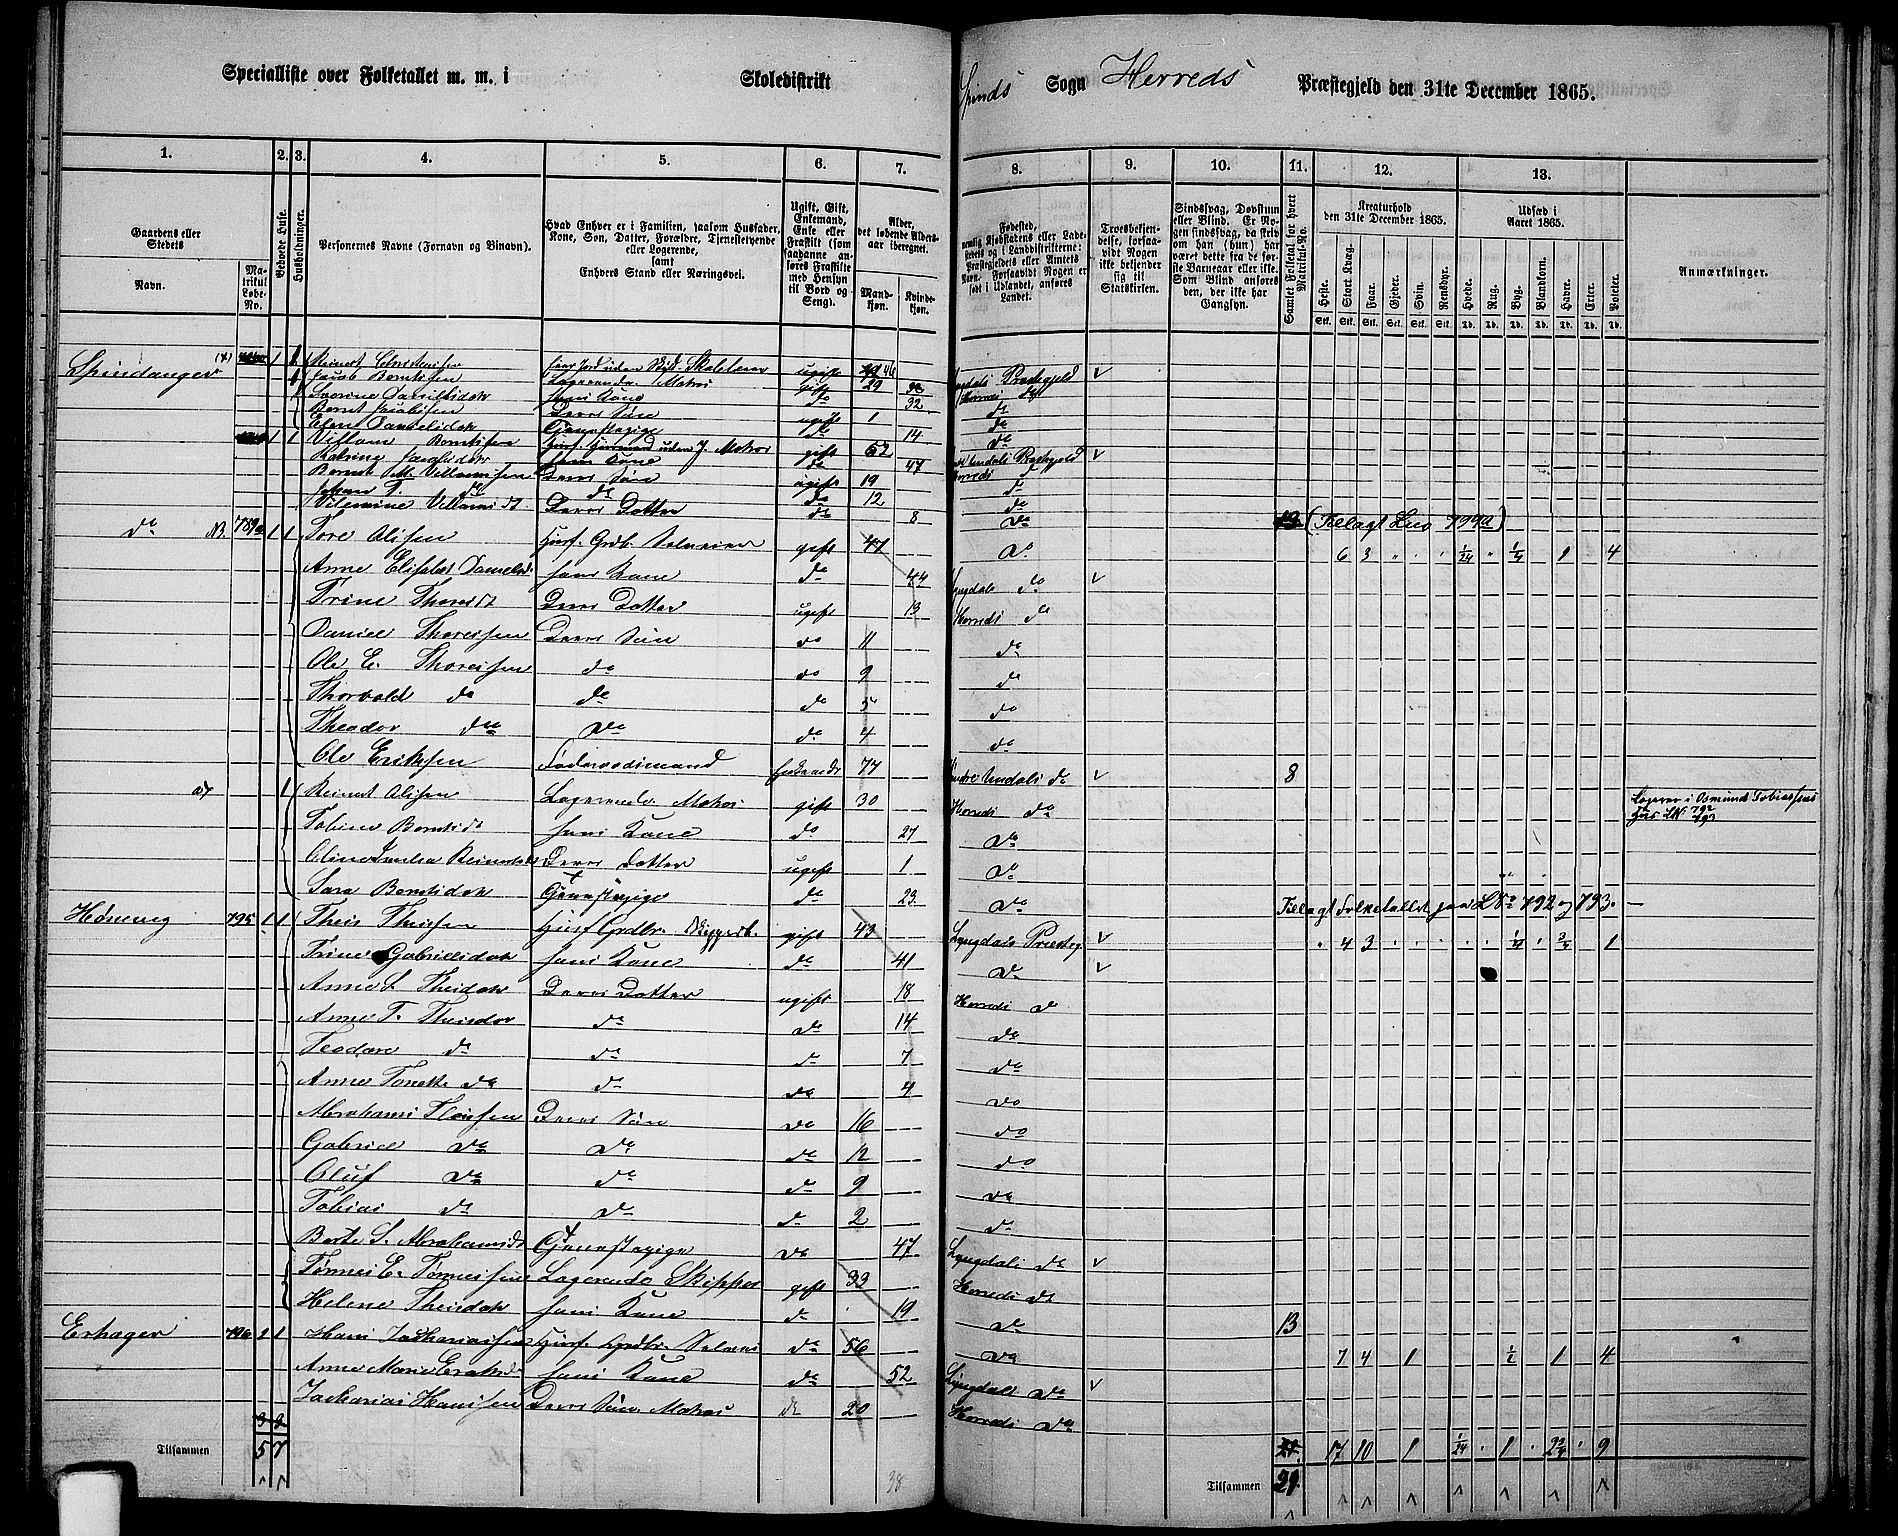 Specialliste over Folketallet m. m. i Skoledistrikt
Spinds Sogn Herreds Præstegjeld den 31te December 1865.
1. 2. 3. 4. 5. 6. 7. 8. 9. 10. 11. 12. 13.
Gaardens eller Stedets
Navn.
Matrikul Løbe-No.
Beboede Huse.
Husholdninger.
Personernes Navne (Fornavn og Tilnavn).
Hvad Enhver er i Familien, saasom Husfader, Kone, Søn, Datter, Forældre, Tjenestetyende eller Logerende, samt Enhvers Stand eller Næringsvei.
Ugift, Gift, Enkemand, Enke eller Fraskilt (som saadanne anføres Fraskilte med Hensyn til Bord og Seng).
Alder, det løbende Aldersaar iberegnet.
Mandkjøn.
Kvindekjøn.
Fødested, nemlig Kjøbstadens eller Ladestedets og i Landdistrikterne: Præstegjeldets eller Amtets Navn. Forsaavidt Nogen er født i Udlandet, anføres Landet.
Troesbekjendelse, forsaavidt Nogen ikke bekjender sig til Statskirken.
Sindssvag, Døvstum eller Blind. Er Nogen sindssvag, da skriv om han (hun) har været dette fra de første Barneaar eller ikke. Som Blind anføres den, der ikke har Gangsyn.
Samlet Folketal for hvert Matrikul-No.
Kreaturhold den 31te December 1865.
Heste. Stort Kvæg. Faar. Gjeder. Svin. Rensdyr.
Udsæd i Aaret 1865.
Hvede. Rug. Byg. Blandkorn. Havre. Erter. Poteter.
Anmærkninger.
Spindanger 1 1 Reinert ugift 46 Lyngdals Præstegjeld v
Jacob Berntsen Logerende Matros gift 29 Herreds
Daniel​sdatter hans Kone do 32 do
Bernt Jacobsen Deres Søn ugift 1 do
Elen Danielsdatter Tjenestepige do 14 do
1 1 Villam Berntsen gift 52 v
hans Kone do 47 Herreds
Bernt M. Villamsen Deres Søn ugift 19 do
Johan T. do do do 12 do
Vilemine Villamsdt. Deres Datter do 8 do
(Tillagt Lno 799a)
do N3. 789a 1 1 Tore Olisen Husf. Grdb. Selveier gift 47 do 6 3 1/24 1/4 1 4
Anne Elisabet Danielsd. hans Kone do 44 Lyngdals do v
Trine Thoresdt Deres Datter ugift 13 Herreds do
Daniel Thoresen Deres Søn do 11 do
Ole E. Thoresen do do 9 do
Thorvald do do do 5 do
Theodor do do do 4 do
Ole Eriksen Føderaadsmand Enkemd. 77 Søndre Undals do v 8
1 Reinert Olisen Logerende Matros gift 30 Herreds do Logerer i Osmund Tobiassens Hus LN. 792 793
Tobine Berntsdt hans Kone do 27 do
Oline Amalia Reinertsd. Deres Datter ugift 1 do
Sara Berntsdatr Tjenestepige do 23 do Tillagt Folketallet paa LNo 792 og 793.
795 1 1 Theis Theisen Husf Grdbr. Skipper gift 43 Lyngdals Præsteg. v 4 3 1/4 3/4 1
Trine Gabrielsdatr hans Kone do 41 do v
Anne S. Theisdatr Deres Datter ugift 18 Herreds do
Anne T. Theisdatr do do 14 do
Teodore do do do 7 do
Anne Tonette do do do 4 do
Abraham Theisen Deres Søn do 16 do
Gabriel do do do 12 do
Oluf do do do 9 do
Tobias do do do 2 do
Berte S. Abrahamsdt Tjenestepige do 47 Lyngdals do v
Tønnes E. Tønnessen Logerende Skipper gift 33 Herreds do
Helene Theisdatr hans Kone do 19 do 13
Erhager 796 1 1 Hans Zachariassen Husf. Grdbr. Selveier do 56 do 7 4 1 1/2 1 4
Anne Marie Eriksd. hans Kone do 52 Lyngdals do v
Zacharias Hansen Deres Søn Matros do 20 Herreds do
Tilsammen 5 7
Tilsammen 21 17 10 1 1/24 1 2 3/4 9
38